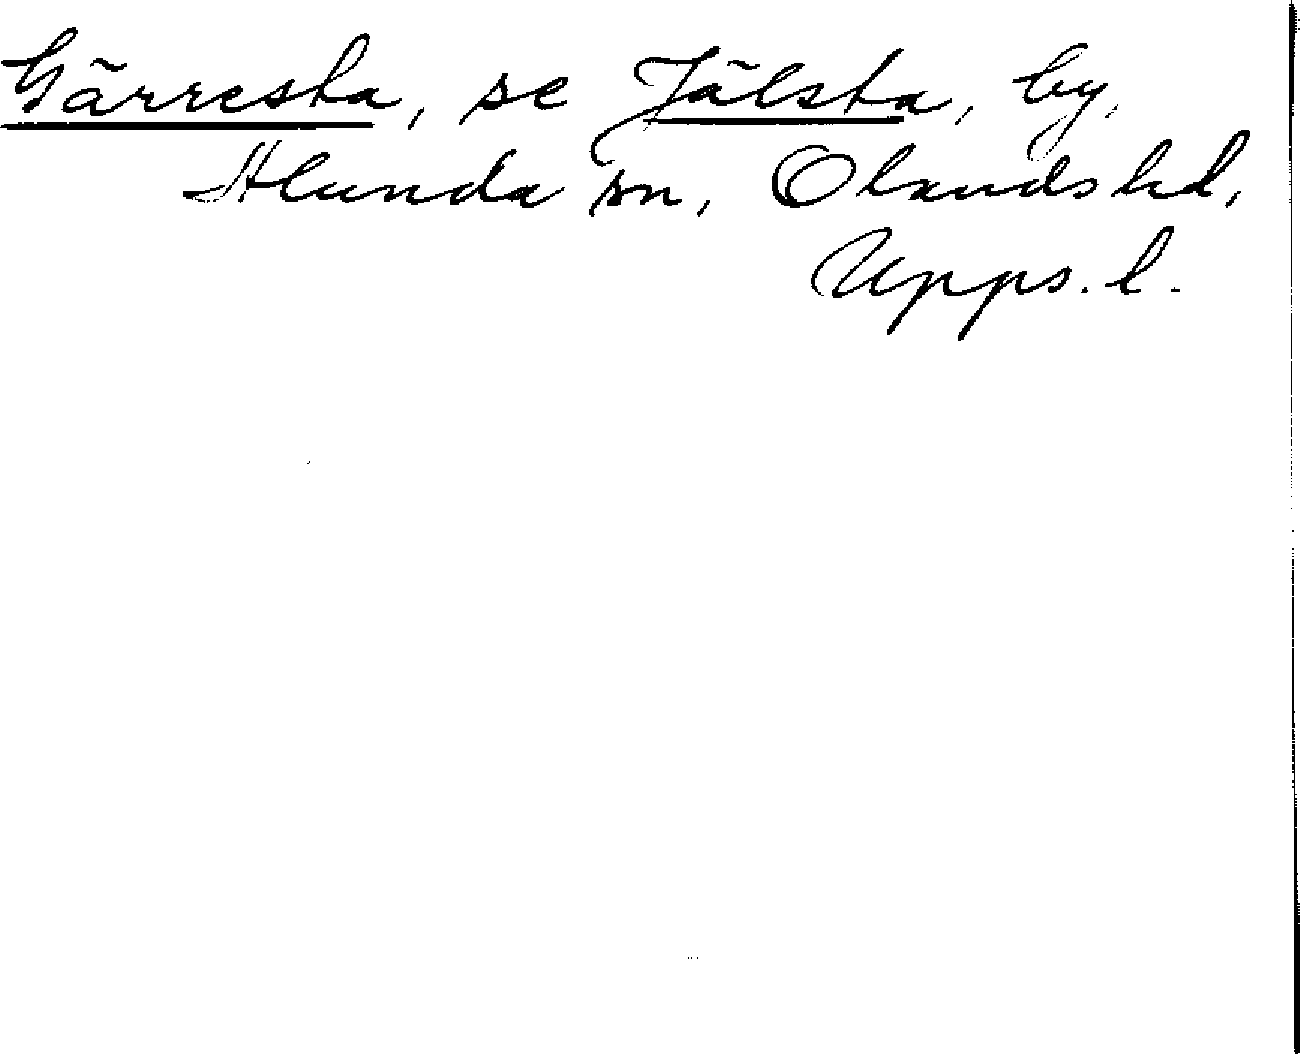 Gärresta, se Jälsta, by,
Alunda sn, Olands hd,
Upps. l.